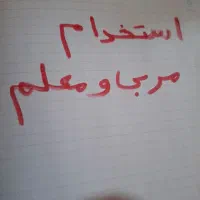 استخدام
مربی و معلم